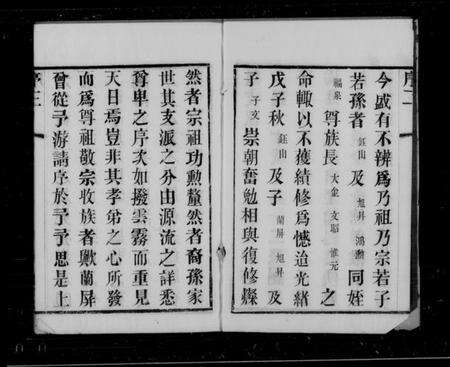 序二
今或有不辨為乃祖乃宗若子
若孫者鈺山及旭昇鴻勳同姪
福泉尊族長大金文昭惟元之
命輒以不獲續修為憾迨光緒
戊子秋鈺山及子蘭屏旭昇及
子子文崇朝奮勉相與復修燦
然者宗祖功勲釐然者裔孫家
世其支派之分由源流之詳悉
尊卑之序次如撥雲霧而重見
天日焉豈非其孝弟之心所發
而為尊祖敬宗收族者歟蘭屏
曾從予游請序於予予思是上
序三